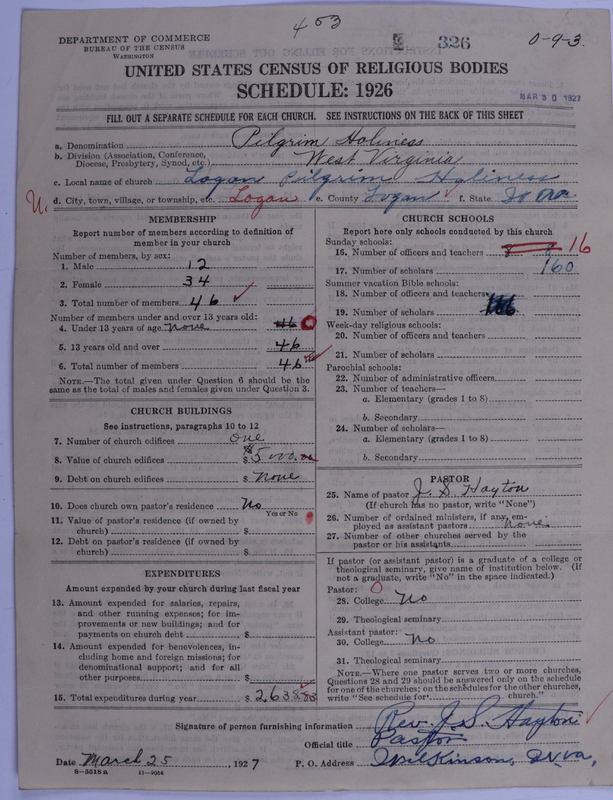 453
326
0-9-3
DEPARTMENT OF COMMERCE
BUREAU OF THE CENSUS
WASHINGTON
UNITED STATES CENSUS OF RELIGIOUS BODIES
SCHEDULE: 1926
MAR 30 1927
FILL OUT A SEPARATE SCHEDULE FOR EACH CHURCH. SEE INSTRUCTIONS ON THE BACK OF THIS SHEET
a. Denomination Pilgrim Holiness
b. Division (Association, Conference, Diocese, Presbytery, Synod, etc.) West Virginia
c. Local name of church Logan Pilgrim Holiness
U. d. City, town, village, or township, etc. Logan e. County Logan f. State W Va
MEMBERSHIP
Report number of members according to definition of
member in your church
Number of members, by sex:
1. Male 12
2. Female 34
3. Total number of members 46
Number of members under and over 13 years old:
4. Under 13 years of age none 46 0
5. 13 years old and over 46
6. Total number of members 46
NOTE.—The total given under Question 6 should be the
same as the total of males and females given under Question 3.
CHURCH BUILDINGS
See instructions, paragraphs 10 to 12
7. Number of church edifices one
8. Value of church edifices $5000.00
9. Debt on church edifices $ None
10. Does church own pastor's residence No
Yes or No
11. Value of pastor's residence (if owned by
church) $
12. Debt on pastor's residence (if owned by
church) $
EXPENDITURES
Amount expended by your church during last fiscal year
13. Amount expended for salaries, repairs,
and other running expenses; for im-
provements or new buildings; and for
payments on church debt $
14. Amount expended for benevolences, in-
cluding home and foreign missions; for
denominational support; and for all
other purposes $
15. Total expenditures during year $2638.83
CHURCH SCHOOLS
Report here only schools conducted by this church
Sunday schools:
16. Number of officers and teachers 16
17. Number of scholars 160
Summer vacation Bible schools:
18. Number of officers and teachers
19. Number of scholars
Week-day religious schools:
20. Number of officers and teachers
21. Number of scholars
Parochial schools:
22. Number of administrative officers
23. Number of teachers—
a. Elementary (grades 1 to 8)
b. Secondary
24. Number of scholars—
a. Elementary (grades 1 to 8)
b. Secondary
PASTOR
25. Name of pastor J. S. Hayton
(If church has no pastor, write "None")
26. Number of ordained ministers, if any, em-
ployed as assistant pastors none
27. Number of other churches served by the
pastor or his assistants
If pastor (or assistant pastor) is a graduate of a college or
theological seminary, give name of institution below. (If
not a graduate, write "No" in the space indicated.)
Pastor: 0
28. College No
29. Theological seminary
Assistant pastor:
30. College No
31. Theological seminary
NOTE.—Where one pastor serves two or more churches,
Questions 28 and 29 should be answered only on the schedule
for one of the churches; on the schedules for the other churches,
write "See schedule for church."
Signature of person furnishing information Rev. J. S. Hayton
Official title Pastor
Date March 25, 1927 P. O. Address Wilkinson, W.Va.
8—5518a 11—9054